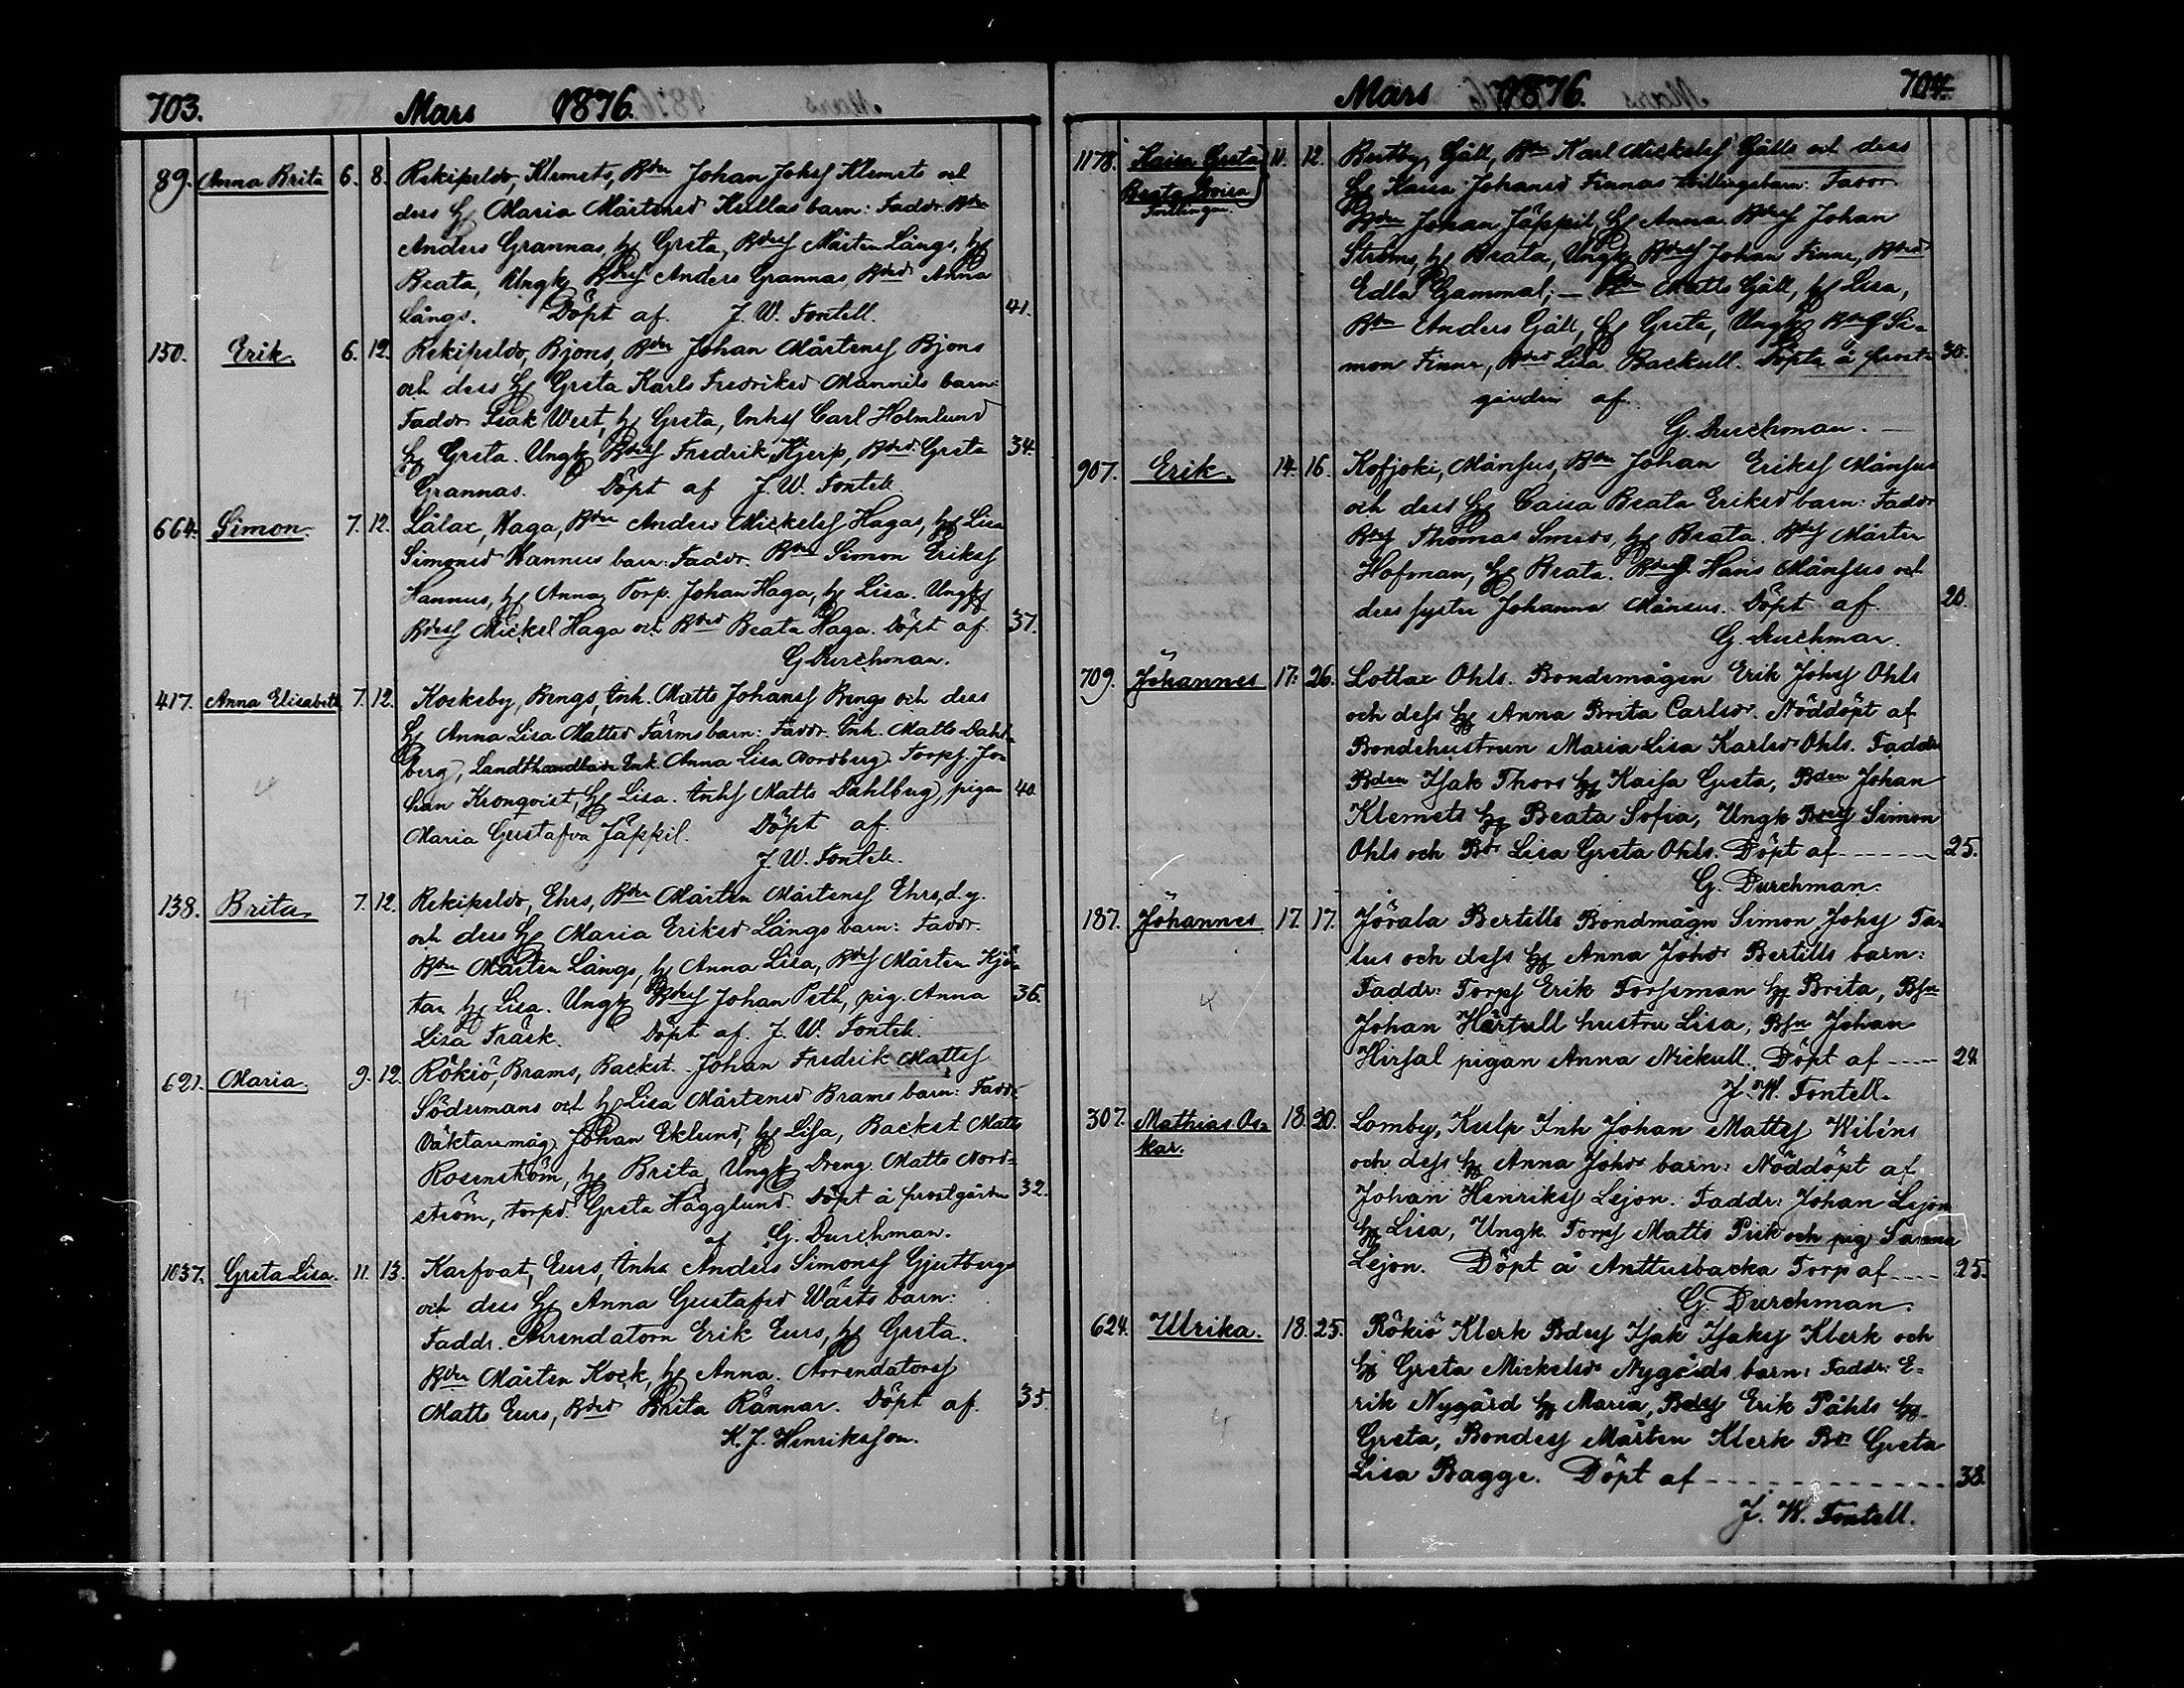 703. Mars 1876.
89. Anna Brita 6. 8. Rekipeldo, Klemets, Bden Johan Johsf Klemets och
dess H Maria Mårtensd Kullas barn: Faddr. Bden
Anders Grannas, H Greta, Bdesf Mårten Långs, H
Beata, Ungk Bdesf Anders Grannas, Bded Anna
Långs. Döpt af J. W. Fontell. 41.
150. Erik. 6. 12. Rekipeldo, Bjons, Bden Johan Mårtensf Bjons
och dess H Greta Karls Fredriksd Mannils barn:
Faddr. Isak West, H Greta, Inhsf Carl Holmlund
H Greta. Ungk Bdesf Fredrik Kjerp, Bded. Greta 34.
Grannas. Döpt af J. W. Fontell.
664. Simon. 7. 12. Lålax, Haga, Bden Anders Mickelsf Hagas, H Lisa
Simonsd Hannus barn: Faddr. Bden Simon Eriksf
Hannus, H Anna, Torp. Johan Haga, H Lisa. Ungk
Bdesf Mickel Haga och Bded Beata Haga. Döpt af 37.
G Durchman.
417. Anna Elisabeth 7. 12. Koskeby, Bengs, Inh. Matts Johansf Bengs och dess
H Anna Lisa Mattsd Färms barn: Faddr. Inh. Matts Dahl-
berg, Landthandlare Enk. Anna Lisa Nordberg. Torpsf. Jo-
han Kronqvist, H Lisa. Inhsf Matts Dahlberg, pigan 40
Maria Gustafva Jäppil. Döpt af
J. W. Fontell.
138. Brita 7. 12. Rekipeldo, Ehrs, Bden Mårten Mårtensf Ehrs, d.y.
och dess H Maria Eriksd Långs barn: Faddr.
Bden Mårten Långs, H Anna Lisa, Bdesf Mårten Kjö-
tar H Lisa. Ungk Bdesf Johan Peth, pig. Anna 36.
Lisa Träsk. Döpt af J. W. Fontell.
621. Maria. 9. 12. Rökiö, Brams, Backst. Johan Fredrik Mattsf
Södermans och H Lisa Mårtensd Brams barn: Faddr.
Väktaremåg Johan Eklund, H Lisa, Backst Matts
Rosenström, H Brita, Ungk Dreng Matts Nord-
ström, torpd. Greta Hägglund. Döpt å prostgården 32.
af G. Durchman.
1037. Greta Lisa. 11. 13. Karfvat, Eurs, Inhs Anders Simonsf Gjutbergs
och dess H Anna Gustafsd Wästs barn:
Faddr. Arrendatorn Erik Eurs, H Greta.
Bden Mårten Kock, H Anna. Arrendatorsf
Matts Eurs, Bded Brita Rännar. Döpt af 35.
K. J. Henriksson.
Mars 1876. 704
1178. Kaisa Greta 11. 12. Bertby, Gäll, Bden Karl Mickelsf Gälls och dess
Beata Lovisa H Kaisa Johansd Finnas tvillingsbarn: Faddr.
Tvillingar. Bden Johan Jäppil, H Anna. Bdesf Johan
Ströms, H Beata, Ungk Bdesf Johan Finne, Bded
Edla Gammal; — Bden Matts Gäll, H Lisa,
Bden Anders Gäll, H Greta, Ungk Bdesf Si-
mon Finne, Bded Lisa Backull. Döpta å prost- 30.
gården af.
G. Durchman. —
907. Erik. 14. 16. Kofjoki, Månsus, Bden Johan Eriksf Månsus
och dess H Caisa Beata Eriksd barn: Faddr
Bdesf Thomas Smeds, H Beata. Bdesf Mårten
Hofman, H Beata. Bdesf. Hans Månsus och
dess syster Johanna Månsus. Döpt af 20.
G. Durchman.
709. Johannes 17. 26. Lotlax Ohls. Bondemågen Erik Johsf Ohls
och dess H Anna Brita Carlsdr. Nöddöpt af
Bondehustrun Maria Lisa Karlsdr Ohls. Faddr
Bden Isak Thors H Kaisa Greta, Bden Johan
Klemets H Beata Sofia, Ungk Bdesf Simon
Ohls och Bdr Lisa Greta Ohls. Döpt af 25.
G. Durchman.
187. Johannes 17. 17. Jörala Bertills Bondmågn Simon Johsf Ta-
lus och dess H Anna Johdr Bertills barn:
Faddr: Torpf Erik Forssman H Brita, Bsn
Johan Härtull hustru Lisa, Bsn Johan
Hirsal pigan Anna Nickull. Döpt af 24
J. W. Fontell.
307. Mathias Os- 18. 20. Lomby, Kulp Inh Johan Mattsf Wiléns
kar. och dess H Anna Johdr barn: Nöddöpt af
Johan Henriksf Lejon. Faddr: Johan Lejon
H Lisa, Ungk. Torpf Matts Piik och pig Sanna
Lejon. Döpt å Anttusbacka Torp af 25.
G. Durchman.
624. Ulrika. 18. 25. Rökiö Klerk Bdesf Isak Isaksf Klerk och
H Greta Mickelsdr Nygårds barn: Faddr: E-
rik Nygård H Maria, Bdesf Erik Påhls H
Greta, Bondesf Mårten Klerk Bdr Greta
Lisa Bagge. Döpt af 38.
J. W. Fontell.